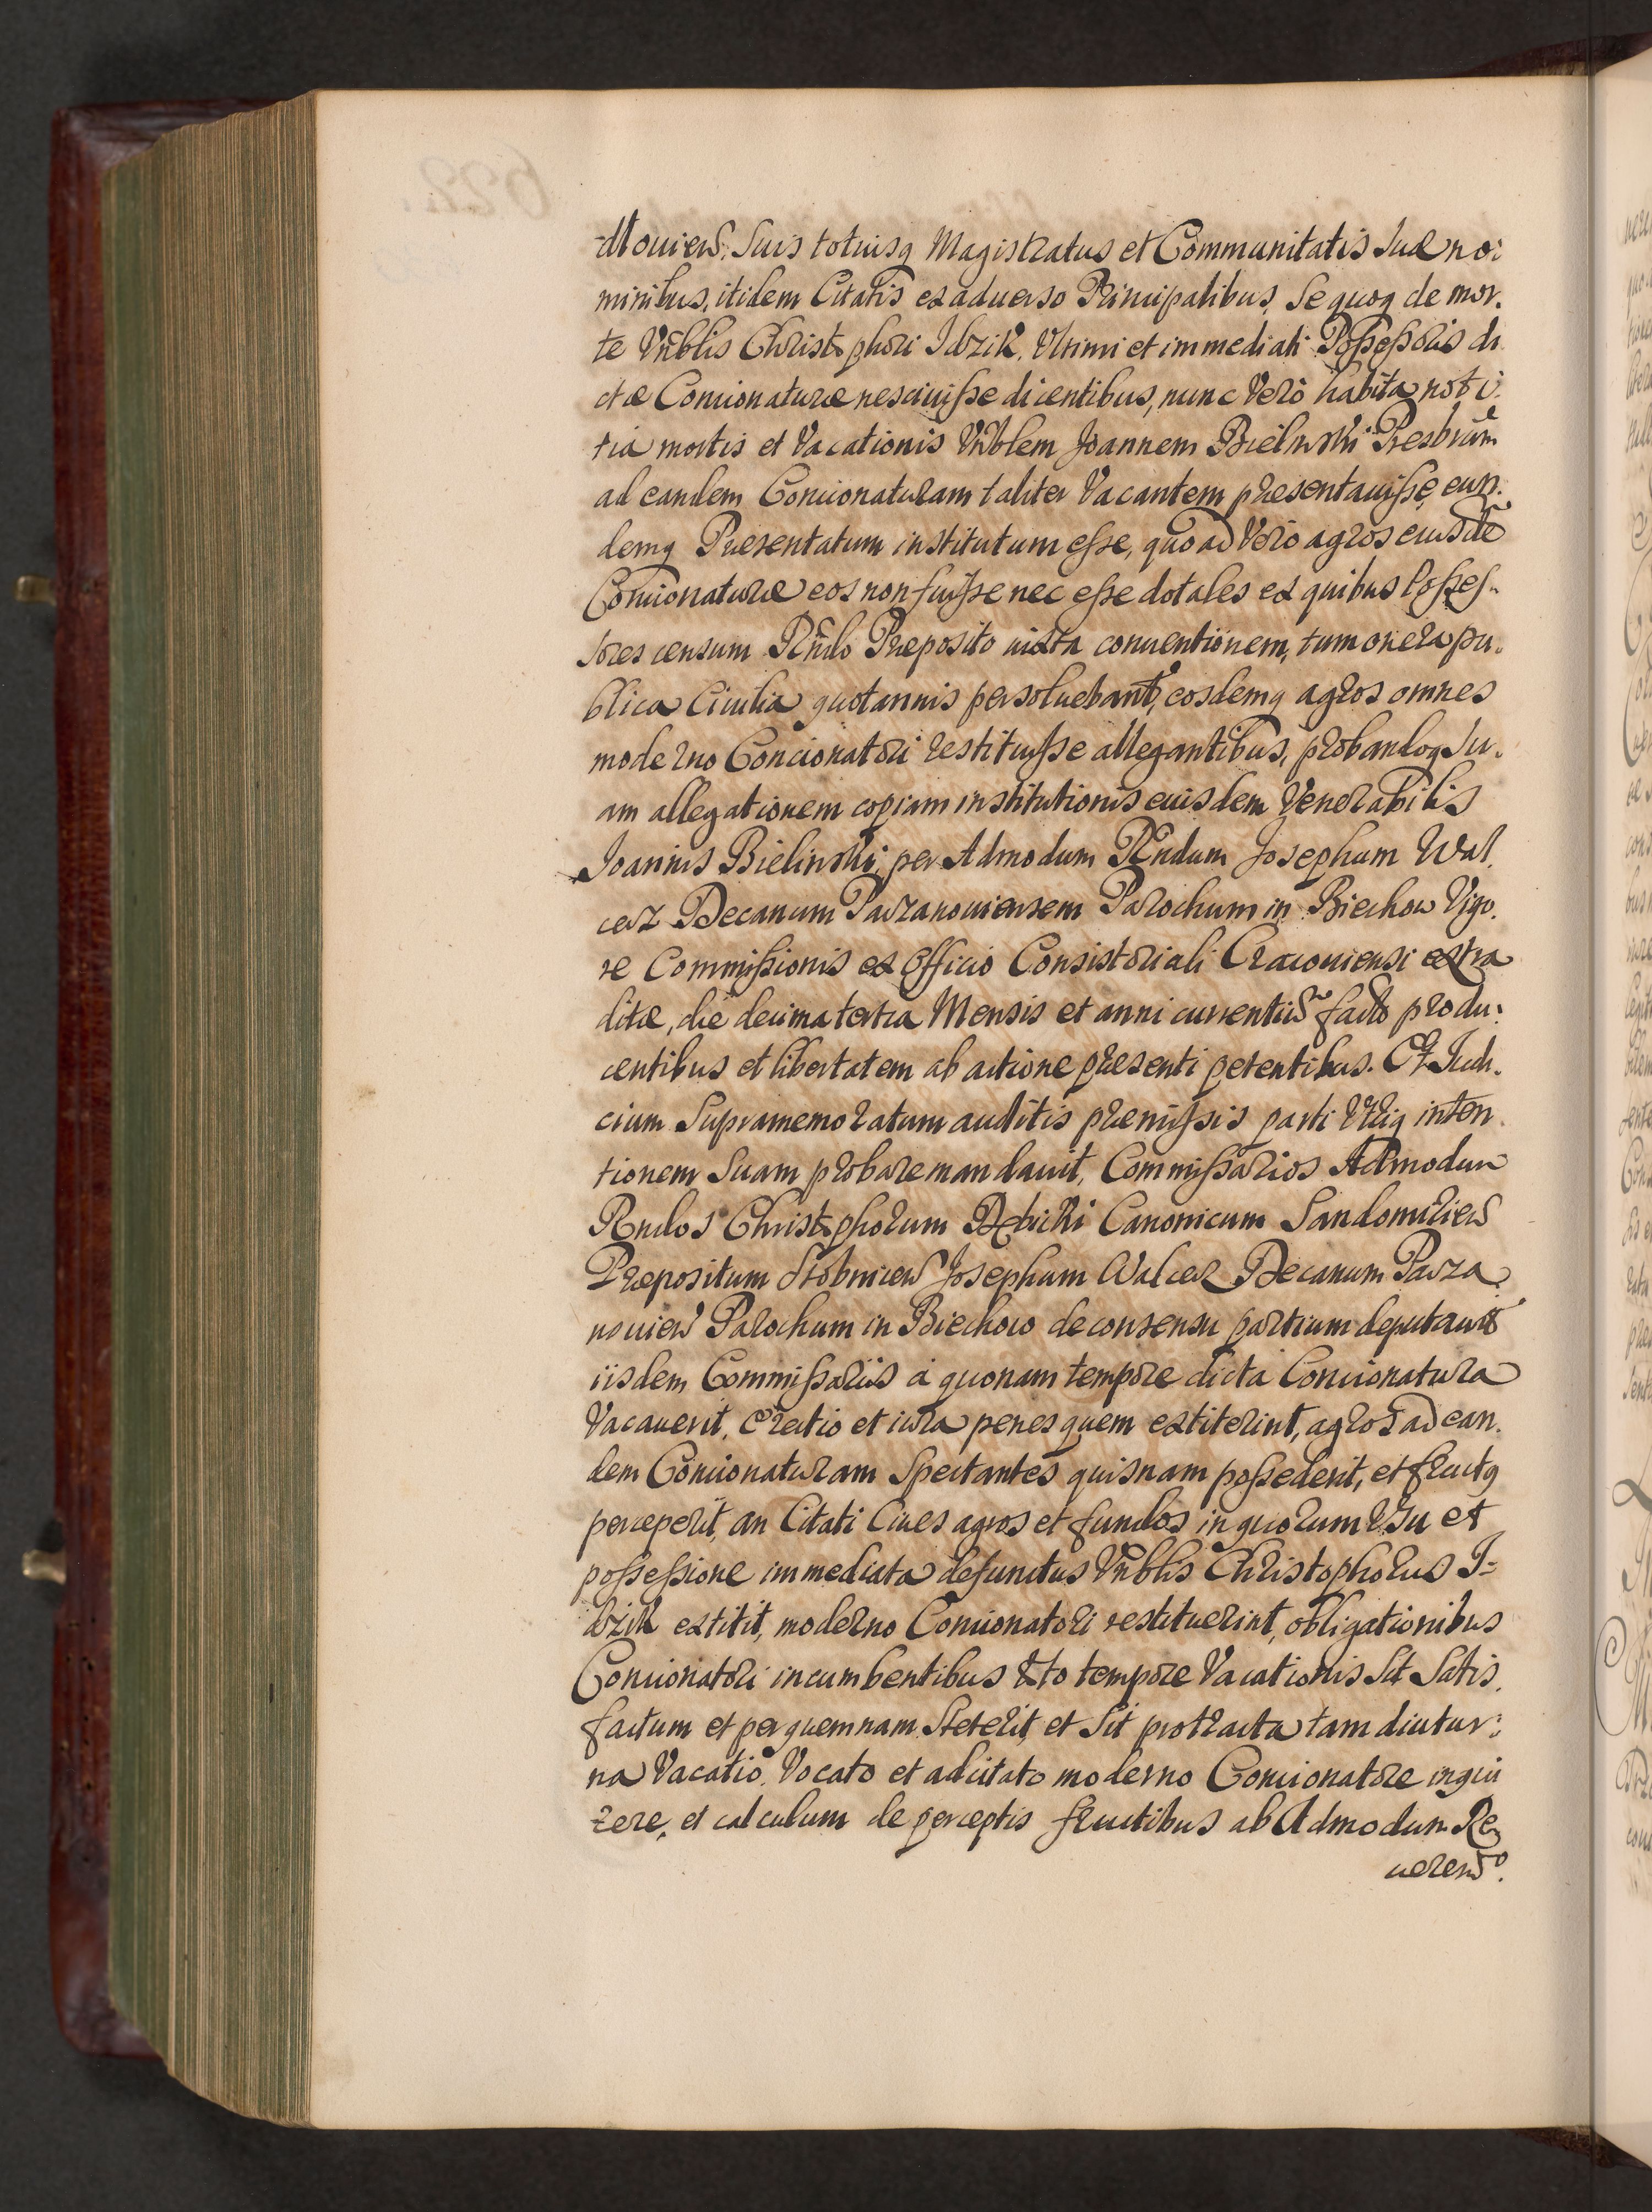 suis totiusq Magistratus et Communitatis suæ no:
minibus, itidem Citatis ex aduerso Principalibus, se quoq de mor.
te Vnblis Christophori Idzik, Vltimi et immediati Possessoris di
ctæ Concionaturæ nesciuisse dicentibus, nunc Vero habita noti:
tia mortis et Vacationis Vnblem Joannem Bielinski Presbrum
ad eandem Concionaturam taliter Vacantem præsentauisse, eun.
demq Præsentatum institutum esse, quo ad Vero agros eiusdē
Concionaturæ eos non fuisse nec esse dotales ex quibus Posses-
sores censum Rndo Præposito iuxta conuentionem, tum onera pu.
blica Ciuilia quotannis persoluebant, eosdemq agros omnes
moderno Concionatori restituisse allegantibus, probandoq su.
am allegationem copiam institutionis eiusdem Venerabilis
Joannis Bielinski, per Admodum Rndum Josephum Wal
cer Decanum Pacanouiensem Parochum in Biechow Vigo.
re Commissionis ex Officio Consistoriali Cracouiensi extra
ditæ, die decima tertia Mensis et anni currentium facto produ:
centibus et libertatem ab actione præsenti petentibus. Et Iudi.
cium Supramemoratum auditis præmissis parti Vtriq inten.
tionem suam probare mandauit, Commissarios Admodum
Rndos Christophorum Canonicum Sandomirien
Præpositum Stobnicen Josephum Walcer Decanum Pacza
nouien Parochum in Biechow de consensu partium deputauit
iisdem Commissariis a quonam tempore dicta Concionatura
Vacauerit, Erectio et iura penes quem extiterint, agros ad ean.
dem Concionaturam Spectantes quisnam possederit, et fructq
perceperit, an Citati Ciues agros et fundos in quorum Vsu et
possessione immediata defunctus Vnblis Christophorus I=
dzik extitit, moderno Concionatori restituerint, obligationibus
Concionatori incumbentibus toto tempore Vacationis sit Satis.
factum et per quemnam Steterit, et sit protracta tam diutur:
na Vacatio. Vocato et adcitato moderno Concionatore inqui
rere, et calculum de perceptis fructibus ab Admodum Re
uerendo.